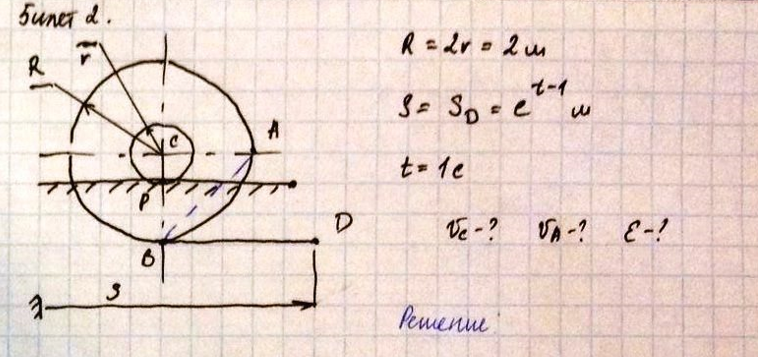 Билет 2.
R = 2r = 2 м
r
R
S = S_D = e^{t-1} м
C
A
t = 1c
P
D
V_C - ? V_A - ? ε - ?
B
S
Решение: